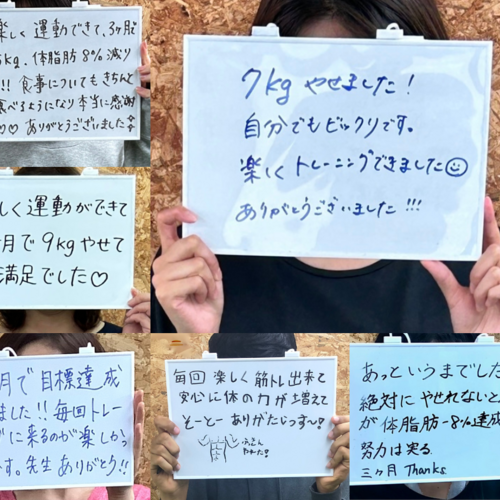 楽しく 運動できて、3ヶ月で
6kg、体脂肪 8%減り
!! 食事についてもきちんと
食べるようになり本当に感謝
♡♡ ありがとうございました
7kg やせました!
自分でもビックリです。
楽しくトレーニングできました☺
ありがとうございました!!!
しく 運動ができて
月で 9kg やせて
満足でした♡
月で 目標達成
ました!! 毎回トレー
グに来るのが楽しかっ
です。先生 ありがとう!!
毎回 楽しく 筋トレ出来て
安心に体の力が増えて
そーとー ありがたじっす〜!
あっというまでした
絶対に やせれないと
が 体脂肪-8%達成
努力は実る
三ヶ月 Thanks